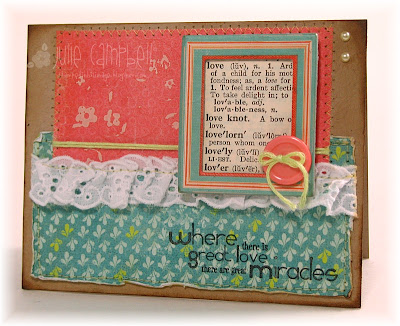 Julie Campbell
love (lŭv), n. 1. Ard
of a child for his mot
fondness; as, a love fo
1. To feel ardent affecti
To take delight in; to
lov'a·ble, adj.
lov'a·ble·ness, n.
love knot. A bow o
love.
love'lorn' (lŭv'lôrn
person whom one
love'ly (lŭv'lĭ
LI·EST. Delic
lov'er (lŭv'ẽr),
where there is
great love
there are great miracles